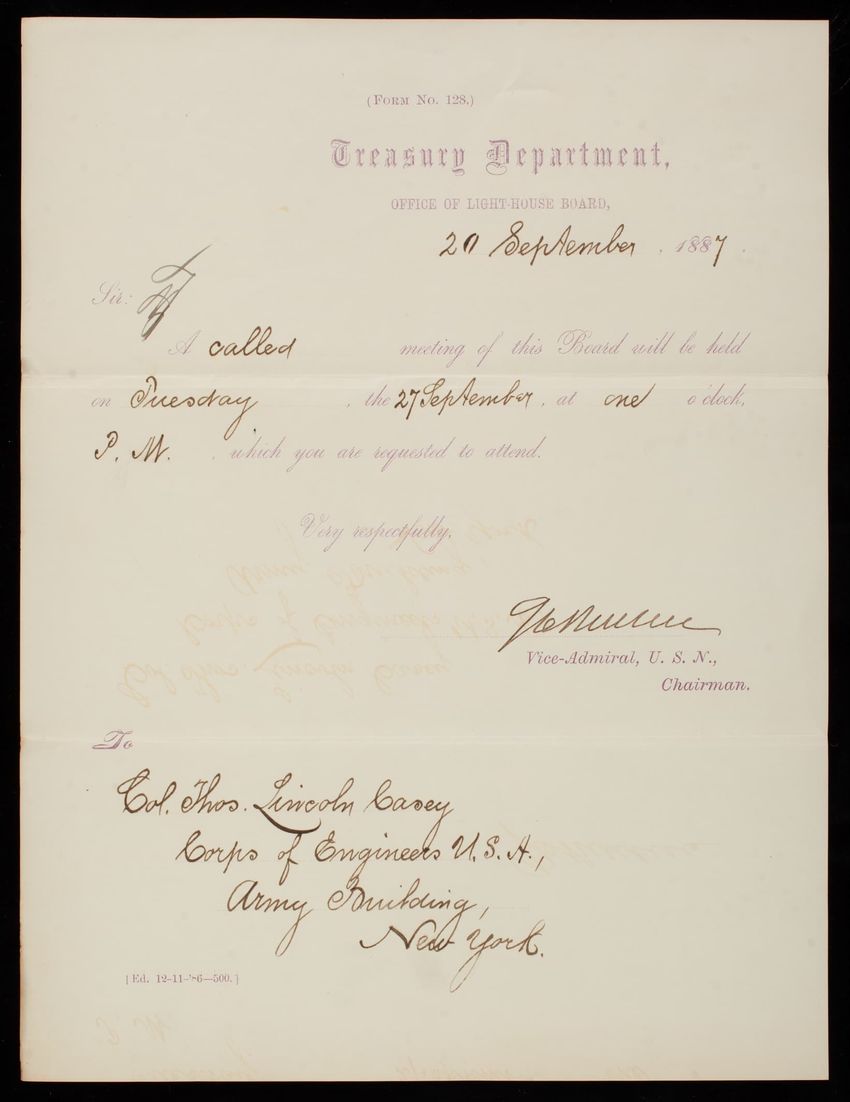 (Form No. 128.)
Treasury Department,
OFFICE OF LIGHT-HOUSE BOARD,
20 September, 1887.
Sir:
A called meeting of this Board will be held
on Tuesday, the 27 September, at one o'clock,
P. M., which you are requested to attend.
Very respectfully,
Vice-Admiral, U. S. N.,
Chairman.
To
Col. Thos. Lincoln Casey
Corps of Engineers U.S.A.,
Army Building,
New York.
[Ed. 12-11-'86—500.]